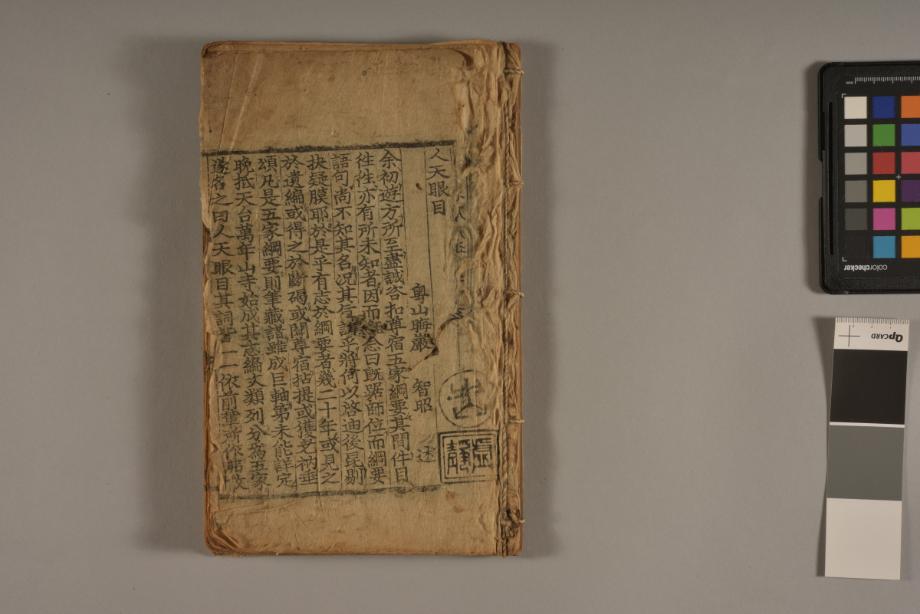 人天眼目
粤山晦巖 智昭 述
余初遊方所至盡誠咨扣尊宿五家綱要其間件目
往性亦有所未知者因而 念曰旣踞師位而綱要
語句尚不知其名況其旨訣乎將何以啓迪後昆剔
抉疑膜耶於是乎有志於綱要者幾二十年或見之
於遺編或得之於斷碣或聞尊宿拈提或獲老衲垂
頌凡是五家綱要則筆藏諸雖成巨軸第未能詳定
晚抵天台萬年山寺始成其志編次類列分爲五家
遂名之曰人天眼目其詞皆一依前輩所作
colorchecker
QPCARD